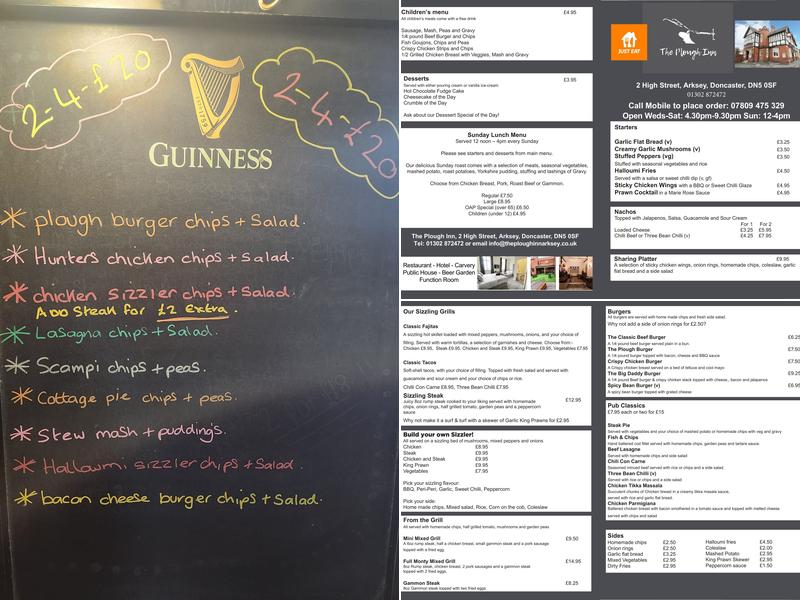 2-4-£20
2-4-£20
1759
GUINNESS
plough burger chips + Salad.
Hunters chicken chips + Salad.
chicken Sizzler chips + Salad.
ADD Steak for £2 Extra.
Lasagna chips + Salad.
Scampi chips + peas.
Cottage pie chips + peas.
Stew mash + pudding's.
Halloumi sizzler chips + Salad.
bacon cheese burger chips + Salad.
Children's menu £4.95
All children's meals come with a free drink
Sausage, Mash, Peas and Gravy
1/4 pound Beef Burger and Chips
Fish Goujons, Chips and Peas
Crispy Chicken Strips and Chips
1/2 Grilled Chicken Breast with Veggies, Mash and Gravy
Desserts £3.95
Served with either pouring cream or vanilla ice-cream
Hot Chocolate Fudge Cake
Cheesecake of the Day
Crumble of the Day
Ask about our Dessert Special of the Day!
Sunday Lunch Menu
Served 12 noon – 4pm every Sunday
Please see starters and desserts from main menu.
Our delicious Sunday roast comes with a selection of meats, seasonal vegetables,
mashed potato, roast potatoes, Yorkshire pudding, stuffing and lashings of Gravy.
Choose from Chicken Breast, Pork, Roast Beef or Gammon.
Regular £7.50
Large £8.95
OAP Special (over 65) £6.50
Children (under 12) £4.95
The Plough Inn, 2 High Street, Arksey, Doncaster, DN5 0SF
Tel: 01302 872472 or email info@theploughinnarksey.co.uk
Restaurant - Hotel - Carvery
Public House - Beer Garden
Function Room
JUST EAT
The Plough Inn
2 High Street, Arksey, Doncaster, DN5 0SF
01302 872472
Call Mobile to place order: 07809 475 329
Open Weds-Sat: 4.30pm-9.30pm Sun: 12-4pm
Starters
Garlic Flat Bread (v) £3.25
Creamy Garlic Mushrooms (v) £3.50
Stuffed Peppers (vg) £3.50
Stuffed with seasonal vegetables and rice
Halloumi Fries £4.50
Served with a salsa or sweet chilli dip (v, gf)
Sticky Chicken Wings with a BBQ or Sweet Chilli Glaze £4.95
Prawn Cocktail in a Marie Rose Sauce £4.95
Nachos
Topped with Jalapenos, Salsa, Guacamole and Sour Cream
For 1 For 2
Loaded Cheese £3.25 £5.95
Chilli Beef or Three Bean Chilli (v) £4.25 £7.95
Sharing Platter £9.95
A selection of sticky chicken wings, onion rings, homemade chips, coleslaw, garlic
flat bread and a side salad
Our Sizzling Grills
Classic Fajitas
A sizzling hot skillet loaded with mixed peppers, mushrooms, onions, and your choice of
filling. Served with warm tortillas, a selection of garnishes and cheese. Choose from:-
Chicken £8.95, Steak £9.95, Chicken and Steak £9.95, King Prawn £9.95, Vegetables £7.95
Classic Tacos
Soft-shell tacos, with your choice of filling. Topped with fresh salad and served with
guacamole and sour cream and your choice of chips or rice.
Chilli Con Carne £8.95, Three Bean Chilli £7.95
Sizzling Steak £12.95
Juicy 8oz rump steak cooked to your liking served with homemade
chips, onion rings, half grilled tomato, garden peas and a peppercorn
sauce
Why not make it a surf & turf with a skewer of Garlic King Prawns for £2.95
Build your own Sizzler!
All served on a sizzling bed of mushrooms, mixed peppers and onions
Chicken £8.95
Steak £9.95
Chicken and Steak £9.95
King Prawn £9.95
Vegetables £7.95
Pick your sizzling flavour:
BBQ, Peri-Peri, Garlic, Sweet Chilli, Peppercorn
Pick your side:
Home made chips, Mixed salad, Rice, Corn on the cob, Coleslaw
From the Grill
All served with homemade chips, half grilled tomato, mushrooms and garden peas
Mini Mixed Grill £9.50
A 6oz rump steak, half a chicken breast, small gammon steak and a pork sausage
topped with a fried egg.
Full Monty Mixed Grill £14.95
8oz Rump steak, chicken breast, 2 pork sausages and a gammon steak
topped with 2 fried eggs.
Gammon Steak £8.25
8oz Gammon steak topped with two fried eggs
Burgers
All burgers are served with home made chips and fresh side salad.
Why not add a side of onion rings for £2.50?
The Classic Beef Burger £6.25
A 1/4 pound beef burger served plain in a bun.
The Plough Burger £7.50
A 1/4 pound burger topped with bacon, cheese and BBQ sauce
Crispy Chicken Burger £7.50
A Crispy chicken breast served on a bed of lettuce and cool mayo
The Big Daddy Burger £9.25
A 1/4 pound Beef burger & crispy chicken stack topped with cheese, bacon and jalapenos
Spicy Bean Burger (v) £6.95
A spicy bean burger topped with grated cheese
Pub Classics
£7.95 each or two for £15
Steak Pie
Served with vegetables and your choice of mashed potato or homemade chips with veg and gravy
Fish & Chips
Hand battered cod fillet served with homemade chips, garden peas and tartare sauce.
Beef Lasagne
Served with homemade chips and side salad
Chilli Con Carne
Seasoned minced beef served with rice or chips and a side salad.
Three Bean Chilli (v)
Served with rice or chips and a side salad
Chicken Tikka Massala
Succulent chunks of Chicken breast in a creamy tikka masala sauce,
served with rice and garlic flat bread.
Chicken Parmigiana
Battered chicken breast with bacon smothered in a tomato sauce and topped with melted cheese
served with chips and salad
Sides
Homemade chips £2.50 Halloumi fries £4.50
Onion rings £2.50 Coleslaw £2.00
Garlic flat bread £3.25 Mashed Potato £2.95
Mixed Vegetables £2.95 King Prawn Skewer £2.95
Dirty Fries £2.95 Peppercorn sauce £1.50